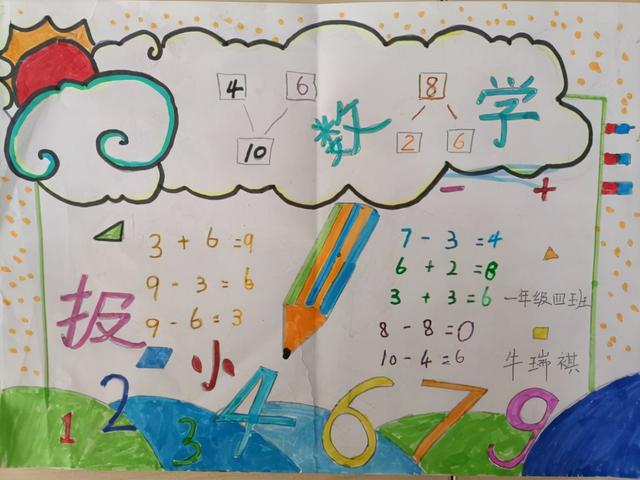 4 6
10
数学
8
2 6
- +
3 + 6 = 9
9 - 3 = 6
9 - 6 = 3
7 - 3 = 4
6 + 2 = 8
3 + 3 = 6
8 - 8 = 0
10 - 4 = 6
一年级四班
牛瑞祺
小
报
1 2 3 4 6 7 9